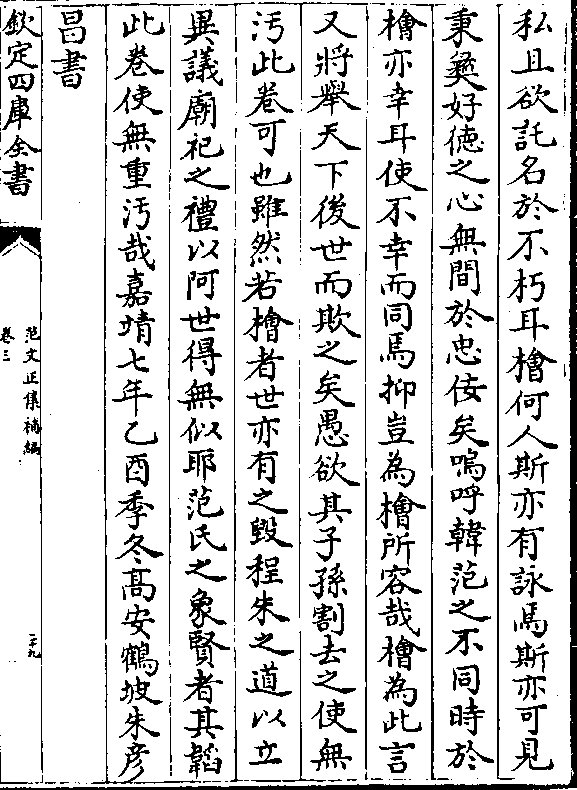 私且欲託名於不朽耳檜何人斯亦有詠焉斯亦可見
秉彞好德之心無間於忠佞矣嗚呼韓范之不同時於
檜亦幸耳使不幸而同焉抑豈為檜所容哉檜為此言
又將舉天下後世而欺之矣愚欲其子孫割去之使無
汚此卷可也雖然若檜者世亦有之毀程朱之道以立
異議廟祀之禮以阿世得無似耶范氏之象賢者其韜
此卷使無重汚哉嘉靖七年乙酉季冬髙安鶴坡朱彦
昌書
欽定四庫全書
范文正集補編
卷三
二十九